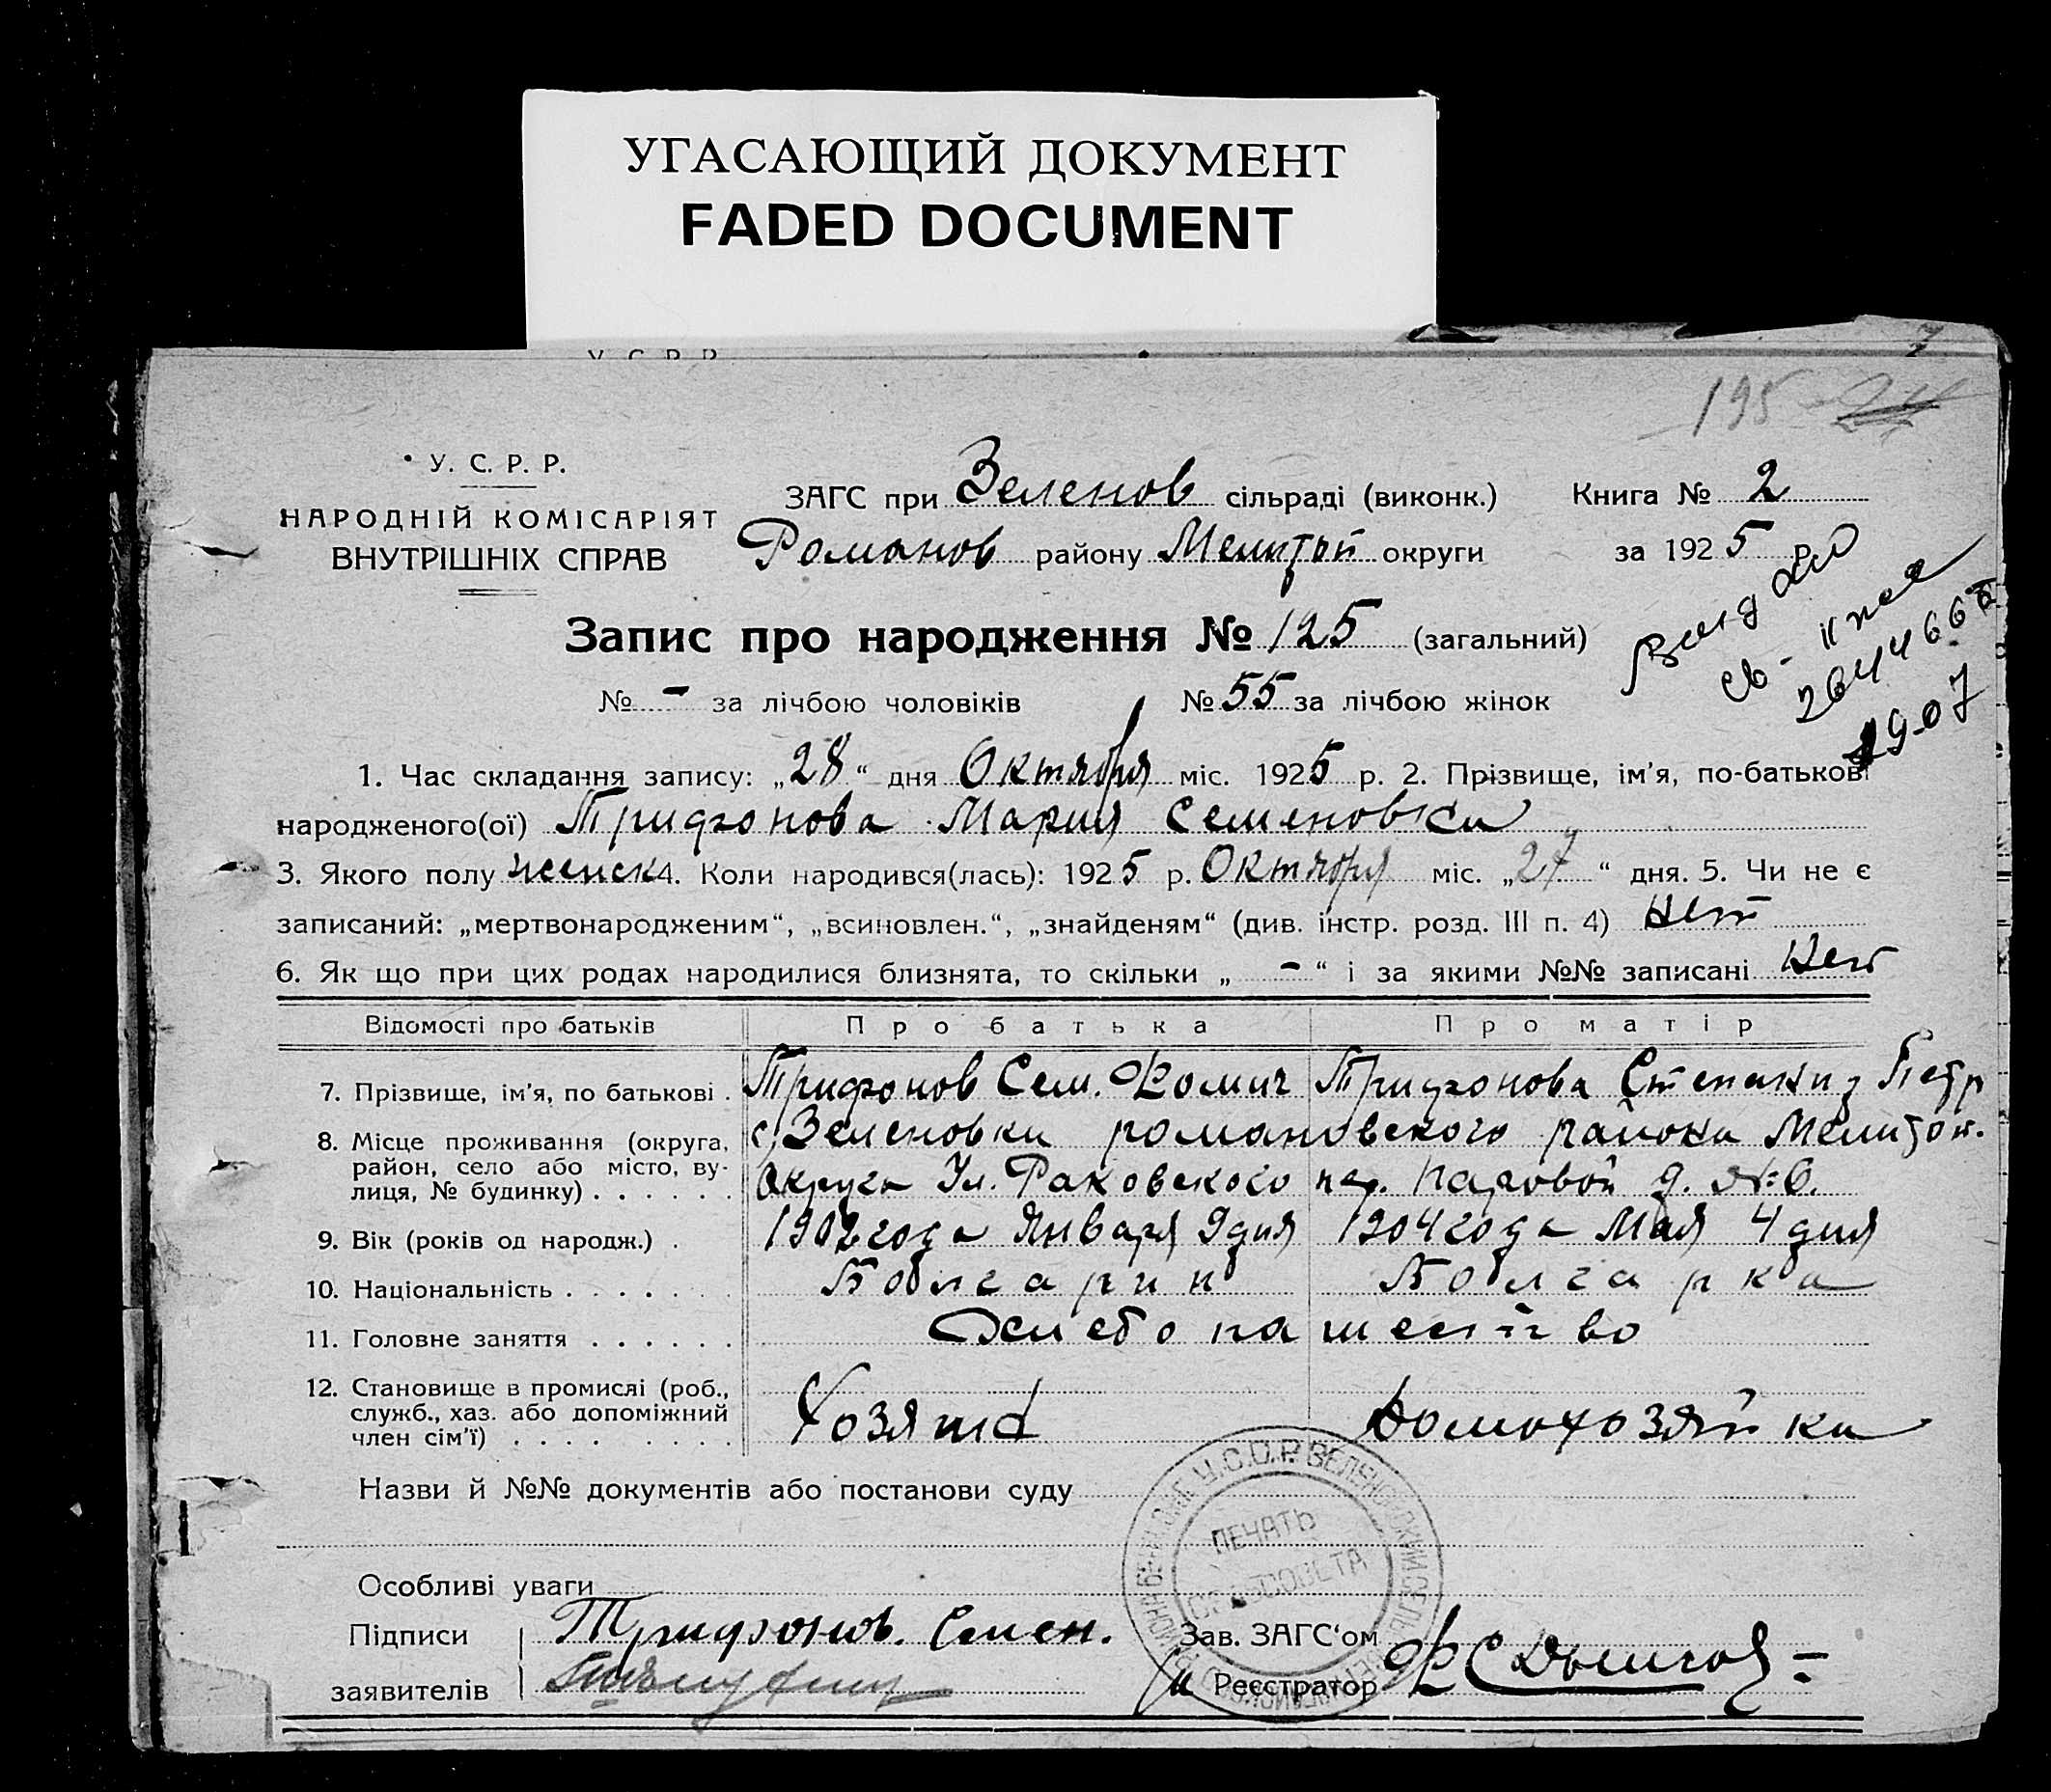 УГАСАЮЩИЙ ДОКУМЕНТ
FADED DOCUMENT
У. С. Р. Р.
7
195 24
У. С. Р. Р.
НАРОДНІЙ КОМІСАРІЯТ
ВНУТРІШНІХ СПРАВ
ЗАГС при Зеленов сільраді (виконк.) Книга № 2
Романов району Мелитоп округи за 1925 р.
Запис про народження № 125 (загальний)
№ - за лічбою чоловіків № 55 за лічбою жінок
Выдано
1907
1. Час складання запису: „28“ дня Октября міс. 1925 р. 2. Прізвище, ім'я, по-батькові
народженого(ої) Трифонова Мария Семеновна
3. Якого полу женск 4. Коли народився(лась): 1925 р. Октября міс. „27“ дня. 5. Чи не є
записаний: „мертвонародженим“, „всиновлен.“, „знайденям“ (див. інстр. розд. III п. 4) Нет
6. Як що при цих родах народилися близнята, то скільки „ - “ і за якими №№ записані Нет
Відомості про батьків Про батька Про матір
7. Прізвище, ім'я, по батькові . Трифонов Сем. Фомич Трифонова Степанид Петр
8. Місце проживання (округа, район, село або місто, вулиця, № будинку) . . . . . . с. Зеленовки романовского района Мелитоп.
округа Ул. Раковского пер. Паровой д. № 6.
9. Вік (років од народж.) . 1902 года Января 9 дня 1904 года Мая 4 дня
10. Національність . . . . . . . Болгарин Болгарка
11. Головне заняття . . . . . . Хлебопашество
12. Становище в промислі (роб., служб., хаз. або допоміжний член сім'ї) . . . . Хозяин Домохозяйка
Назви й №№ документів або постанови суду
ПЕЧАТЬ
СЕЛЬСОВЕТА
Особливі уваги
Підписи Трифонов. Семен. Зав. ЗАГС'ом
заявителів Реєстратор